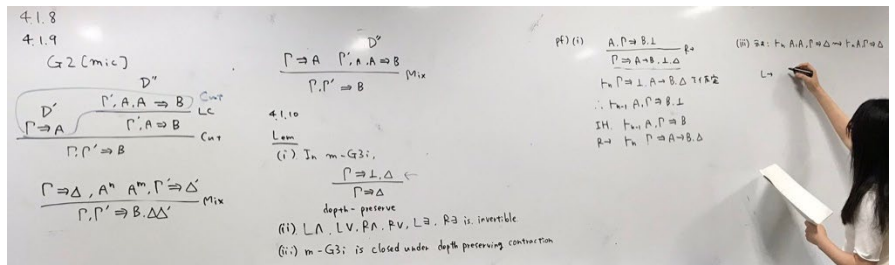 4.1.8
4.1.9
G2[mic]
D''
D' Γ', A, A ⇒ B Cut
LC
Γ ⇒ A Γ', A ⇒ B
Cut
Γ, Γ' ⇒ B
Γ ⇒ Δ, Aⁿ Aᵐ, Γ' ⇒ Δ'
Mix
Γ, Γ' ⇒ B. ΔΔ'
D''
Γ ⇒ A Γ', A, A ⇒ B
Mix
Γ, Γ' ⇒ B
4.1.10
Lem
(i) In m-G3i,
Γ ⇒ ⊥, Δ ←
Γ ⇒ Δ
depth-preserve
(ii) L∧, L∨, R∧, R∨, L∃, R∃ is invertible
(iii) m-G3i is closed under depth preserving contraction
pf) (i) A, Γ ⇒ B, ⊥
R→
Γ ⇒ A→B, ⊥, Δ
⊢ₙ Γ ⇒ ⊥, A→B, Δ
∴ ⊢ₙ₋₁ A, Γ ⇒ B, ⊥
IH. ⊢ₙ₋₁ A, Γ ⇒ B
R→ ⊢ₙ Γ ⇒ A→B, Δ
(iii) ⊢ₙ A, A, Γ ⇒ Δ ⊢ₙ A, Γ ⇒ Δ
L→